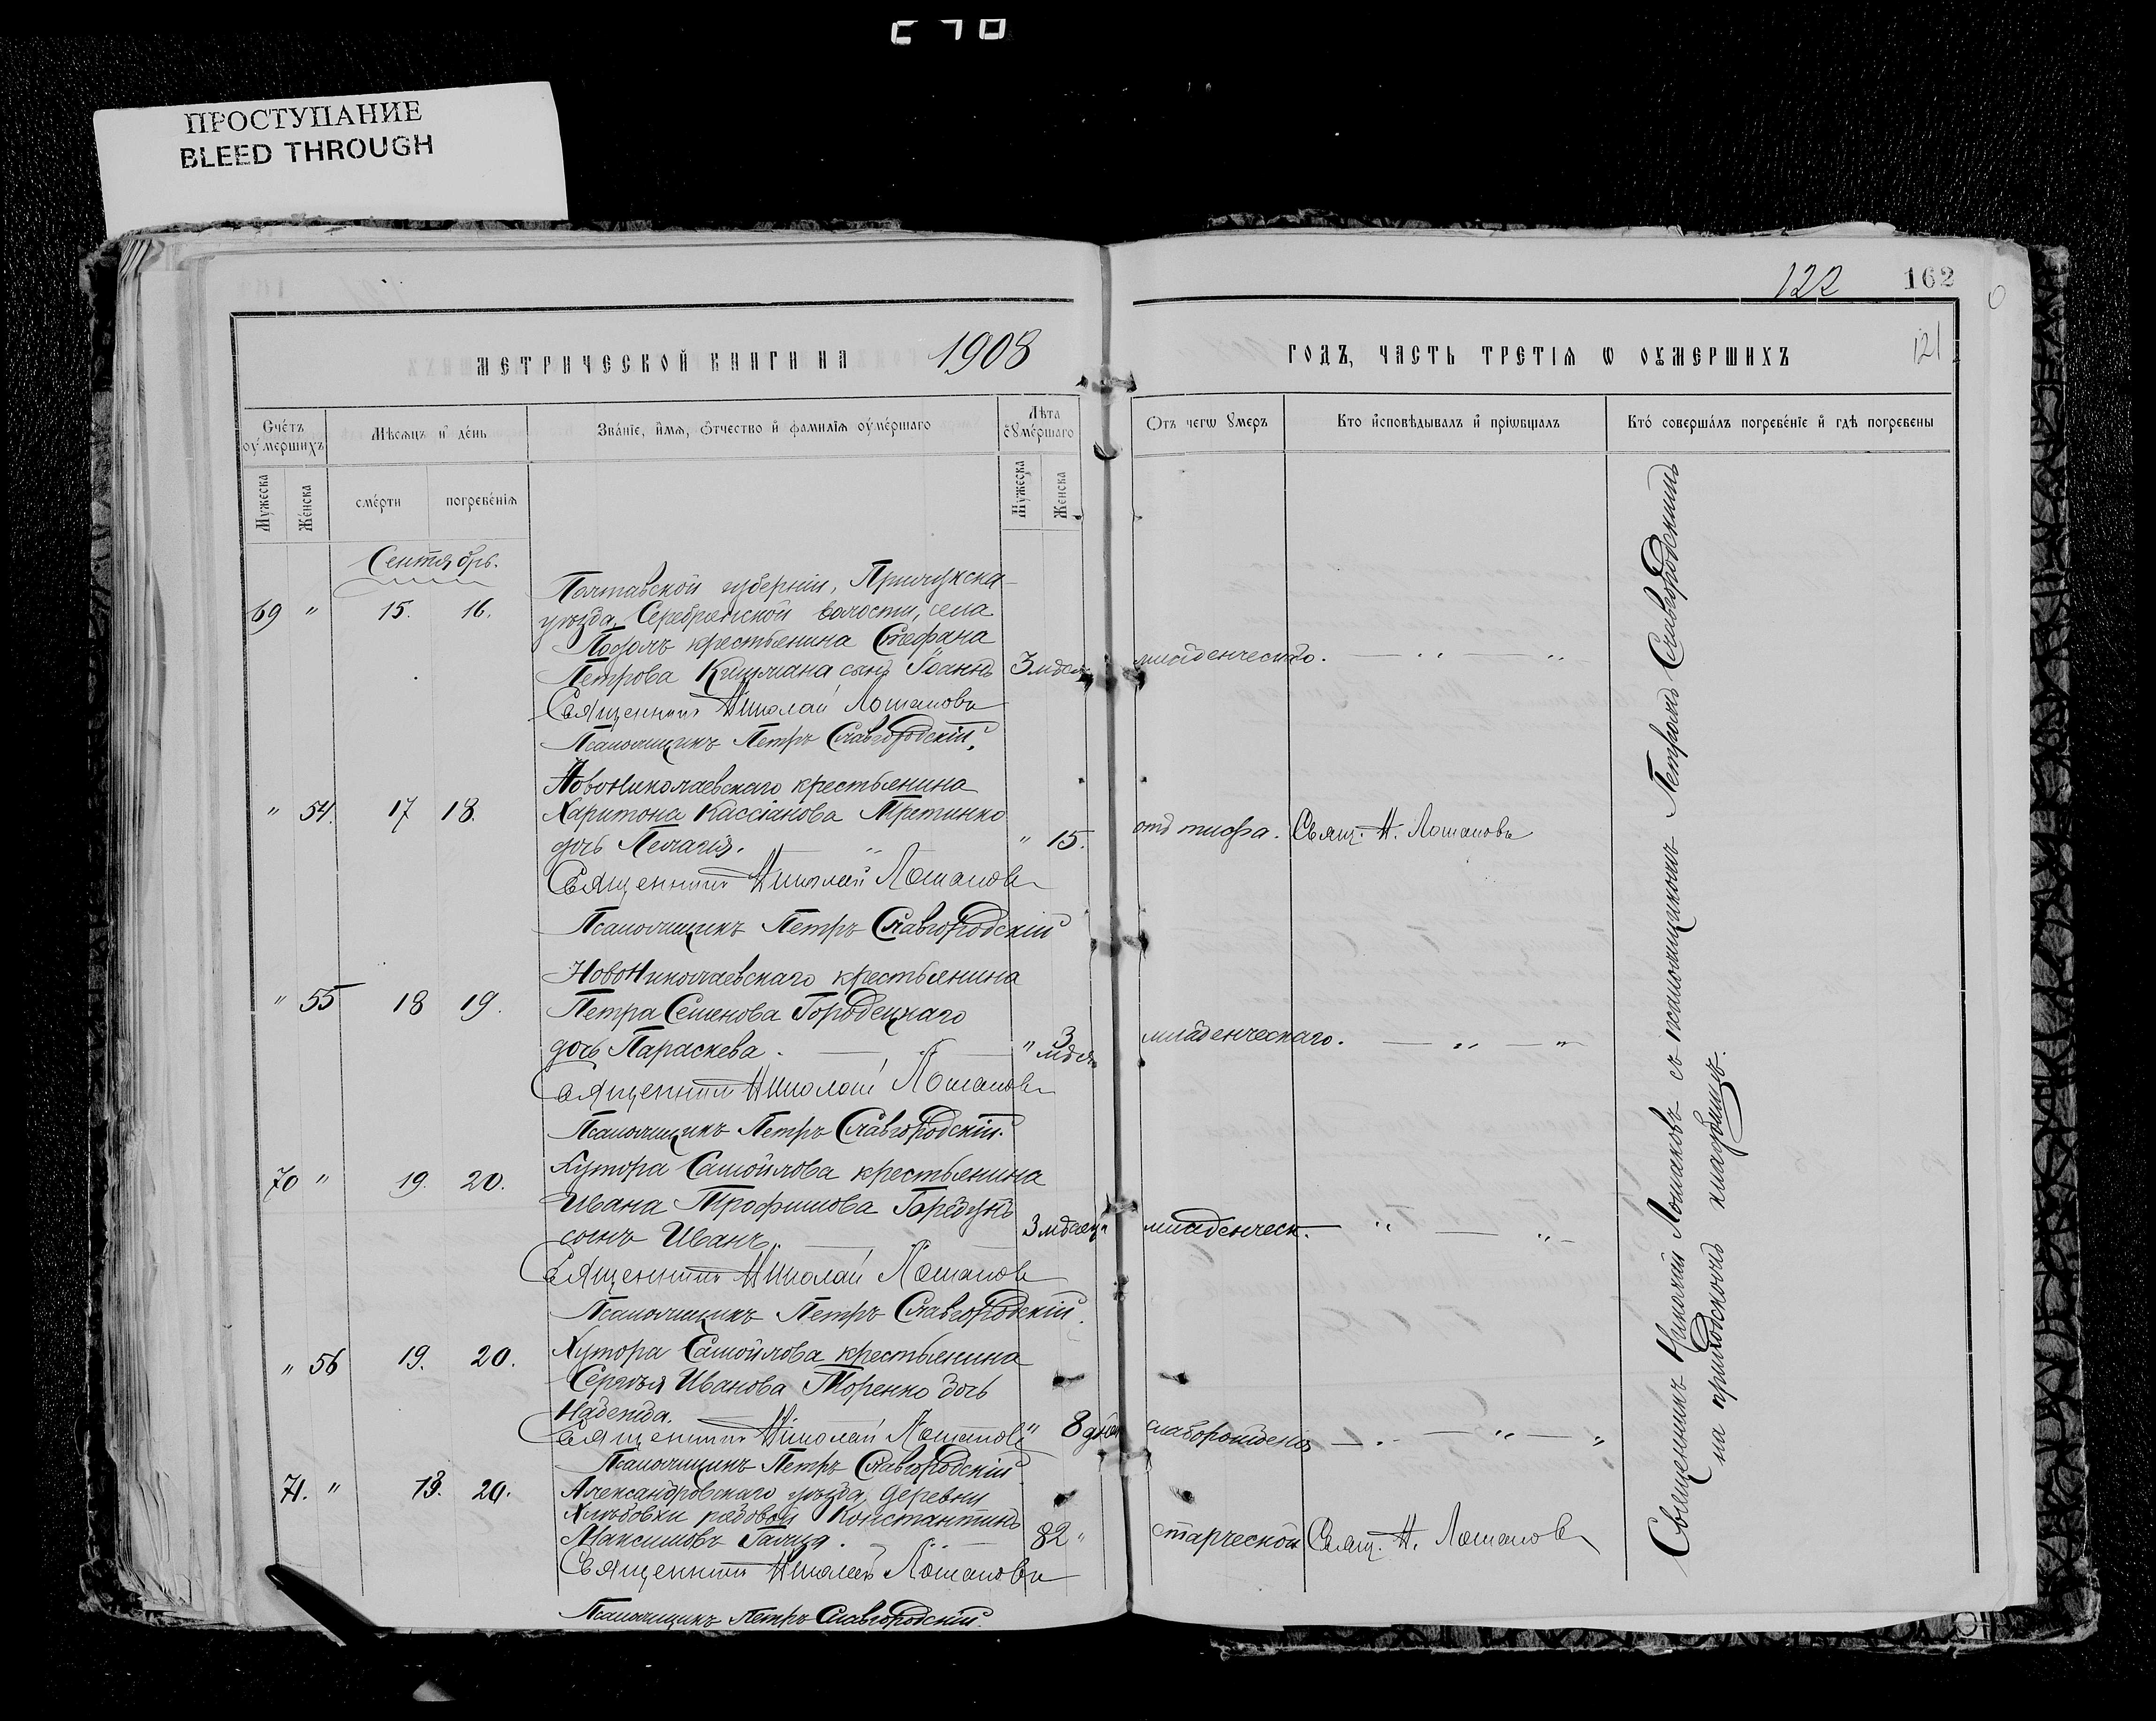 ПРОСТУПАНИЕ
BLEED THROUGH
122 162
121
МЕТРИЧЕСКОЙ КНИГИ НА 1908 ГОДЪ, ЧАСТЬ ТРЕТІѦ Ѡ ОУМЕРШИХЪ
Счетъ оумершихъ
Мѣсяцъ и день
Званіе, имя, отчество и фамилія оумершаго
Лѣта оумершаго
Отъ чегѡ умеръ
Кто исповѣдывалъ и пріѡбщалъ
Кто совершалъ погребеніе и гдѣ погребены
Мужеска
Женска
смерти
погребенія
Мужеска
Женска
Сентябрь.
69 " 15. 16.
Полтавской губерніи, Прилукска-
уѣзда, Серебрянской волости, села
крестьянина Стефана
Петрова сынъ Іоаннъ 3 младенческаго. — „ — „
Священникъ Николай Лошаковъ
Псаломщикъ Петръ Славгородскій.
Новониколаевскаго крестьянина
" 54. 17 18. Харитона Кассіанова Третинко
дочь Пелагія. — " " 15. отъ тифа. Свящ. Н. Лошаковъ
Священникъ Николай Лошаковъ
Псаломщикъ Петръ Славгородскій
Новониколаевскаго крестьянина
" 55 18 19. Петра Семенова Городецкаго
дочь Параскева. — " 3 младенческаго. — „ — „
Священникъ Николай Лошаковъ
Псаломщикъ Петръ Славгородскій.
Хутора Самойлова крестьянина
70 " 19. 20. Ивана Трофимова
сынъ Иванъ. — 3 младенческ. — „ — „
Священникъ Николай Лошаковъ
Псаломщикъ Петръ Славгородскій.
" 56 19. 20. Хутора Самойлова крестьянина
Сергѣя Иванова Моренко дочь
Надежда. " 8 дней
Священникъ Николай Лошаковъ
Псаломщикъ Петръ Славгородскій
71. " Александровскаго уѣзда, деревни
рядовой Константинъ
Максимовъ 82 " старческой Свящ. Н. Лошаковъ
Священникъ Николай Лошаковъ
Псаломщикъ Петръ Славгородскій.
Священникъ Николай Лошаковъ съ псаломщикомъ Петромъ Славгородскимъ
на приходскомъ кладбищѣ.